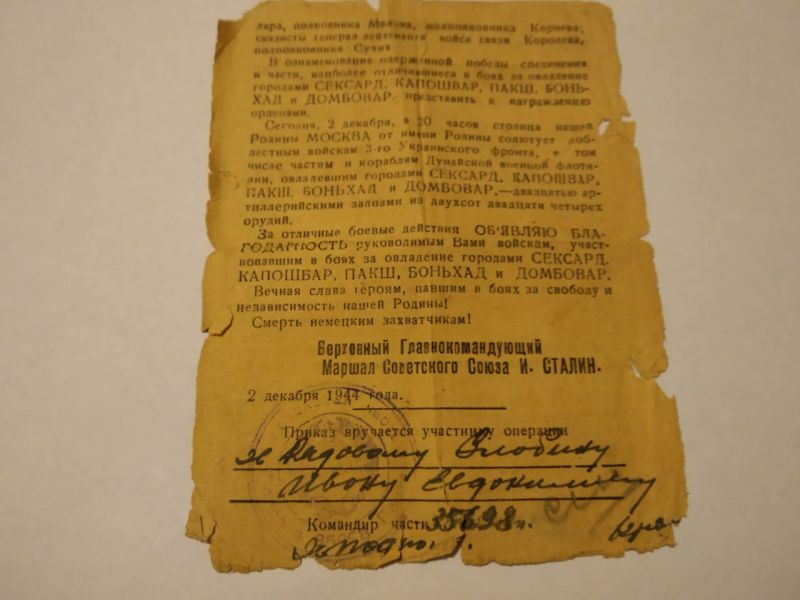 лара, полковника Малова, подполковника Корнева;
связисты генерал-лейтенанта войск связи Королева,
подполковника Сучил
В ознаменование одержанной победы соединения
и части, наиболее отличившиеся в боях за овладение
городами СЕКСАРД, КАПОШВАР, ПАКШ, БОНЬ-
ХАД и ДОМБОВАР, представить к награждению
орденами.
Сегодня, 2 декабря, в 20 часов столица нашей
Родины МОСКВА от имени Родины салютует доб-
лестным войскам 3-го Украинского фронта, в том
числе частям и кораблям Дунайской военной флоти-
лии, овладевшим городами СЕКСАРД, КАПОШВАР,
ПАКШ, БОНЬХАД и ДОМБОВАР,—двадцатью ар-
тиллерийскими залпами из двухсот двадцати четырех
орудий.
За отличные боевые действия ОБ'ЯВЛЯЮ БЛА-
ГОДАРНОСТЬ руководимым Вами войскам, участ-
вовавшим в боях за овладение городами СЕКСАРД,
КАПОШБАР, ПАКШ, БОНЬХАД и ДОМБОВАР.
Вечная слава героям, павшим в боях за свободу и
независимость нашей Родины!
Смерть немецким захватчикам!
Верховный Главнокомандующий
Маршал Советского Союза И. СТАЛИН.
2 декабря 1944 года.
Приказ вручается участнику операции
Рядовому Злобину
Ивану Евдокимовичу
Командир части 35698